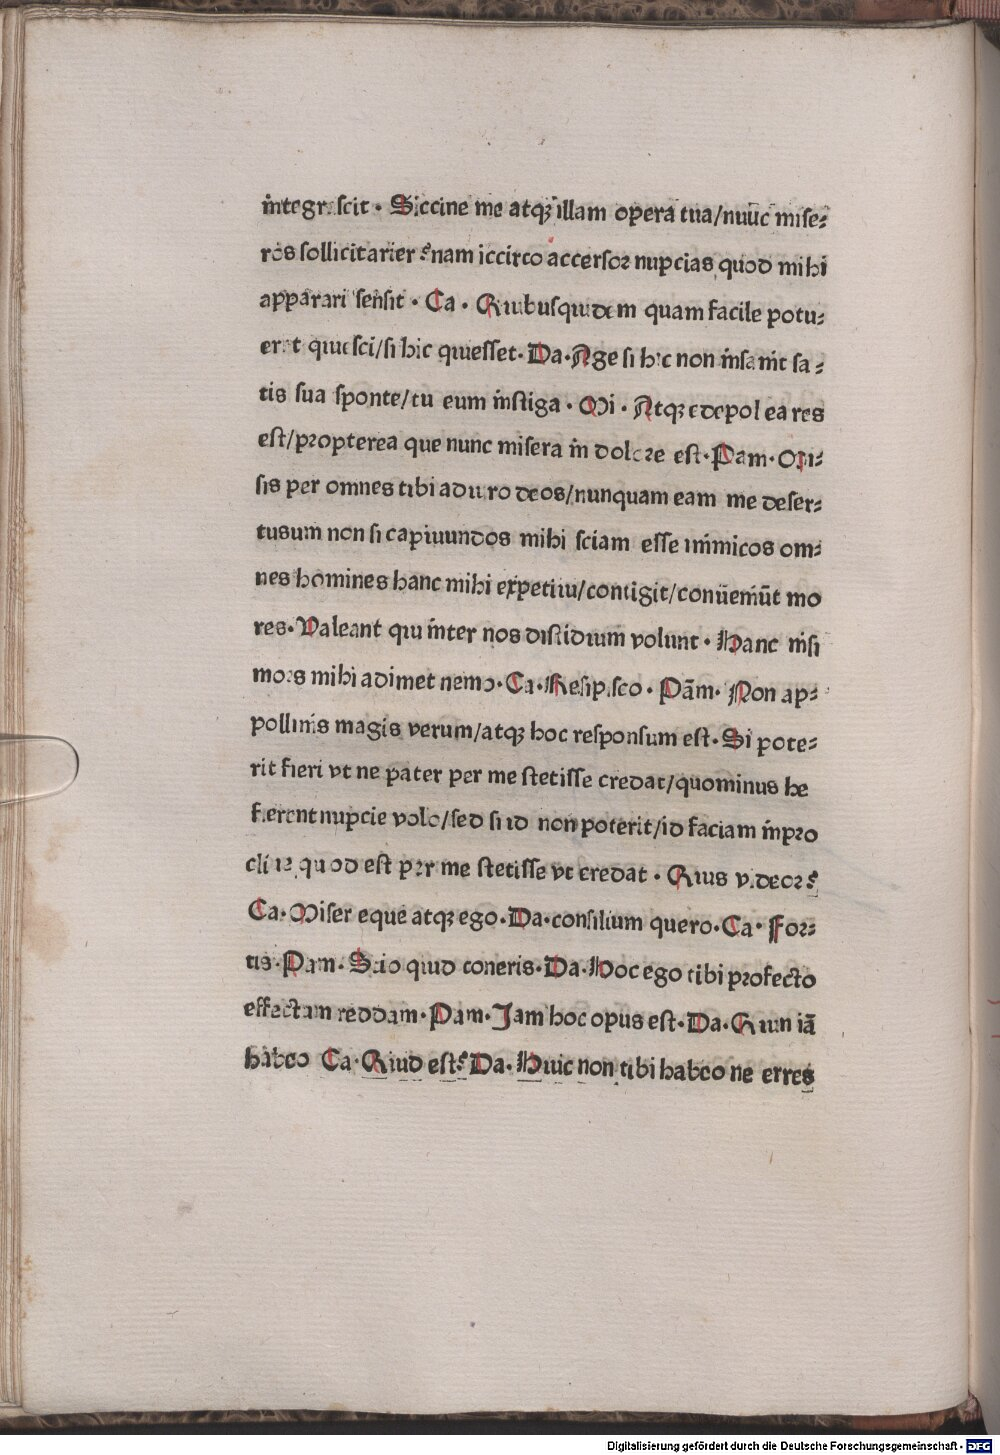 integrascit · Siccine me atqꝫ illam opera tua/nunc mise⸗
ros sollicitarier? nam iccirco accersor nupcias quod mihi
apparari sensit · Ca · Quibusquidem quam facile potu⸗
erat quiesci/si hic quiesset · Da · Age si hic non insanit sa⸗
tis sua sponte/tu eum instiga · Mi · Atqꝫ edepol ea res
est/propterea que nunc misera in dolore est · Pam · Mi⸗
sis per omnes tibi adiuro deos/nunquam eam me deser⸗
tusum non si capiuundos mihi sciam esse inimicos om⸗
nes homines hanc mihi expetiui/contigit/conueniūt mo
res · Valeant qui inter nos discidium volunt · Hanc nisi
mors mihi adimet nemo · Ca · Resipisco · Pām · Non ap⸗
pollinis magis verum/atqꝫ hoc responsum est · Si pote⸗
rit fieri vt ne pater per me stetisse credat/quominus he
fierent nupcie volo/sed si id non poterit/id faciam inpro
cliui quod est per me stetisse vt credat · Quis videor?
Ca · Miser eque atqꝫ ego · Da · consilium quero · Ca · For⸗
tis · Pam · Scio quid coneris · Da · Hoc ego tibi profecto
effectam reddam · Pam · Jam hoc opus est · Da · Quin iā
habeo Ca · Quid est? Da · Huic non tibi habeo ne erres
Digitalisierung gefördert durch die Deutsche Forschungsgemeinschaft · DFG